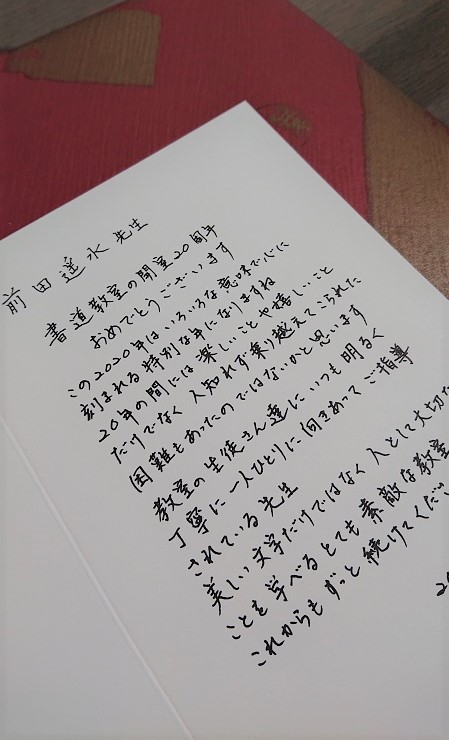 前田遥水先生
書道教室の開室20周年
おめでとうございます
この2020年はいろいろな意味で心に
刻まれる特別な年になりますね
20年の間には楽しいことや嬉しいこと
だけでなく人知れず乗り越えてこられた
困難もあったのではないかと思います
教室の生徒さん達にいつも明るく
丁寧に一人ひとりに向きあってご指導
されている先生
美しい文字だけではなく人として大切な
ことを学べるとても素敵な教室
これからもずっと続けてくださ
20